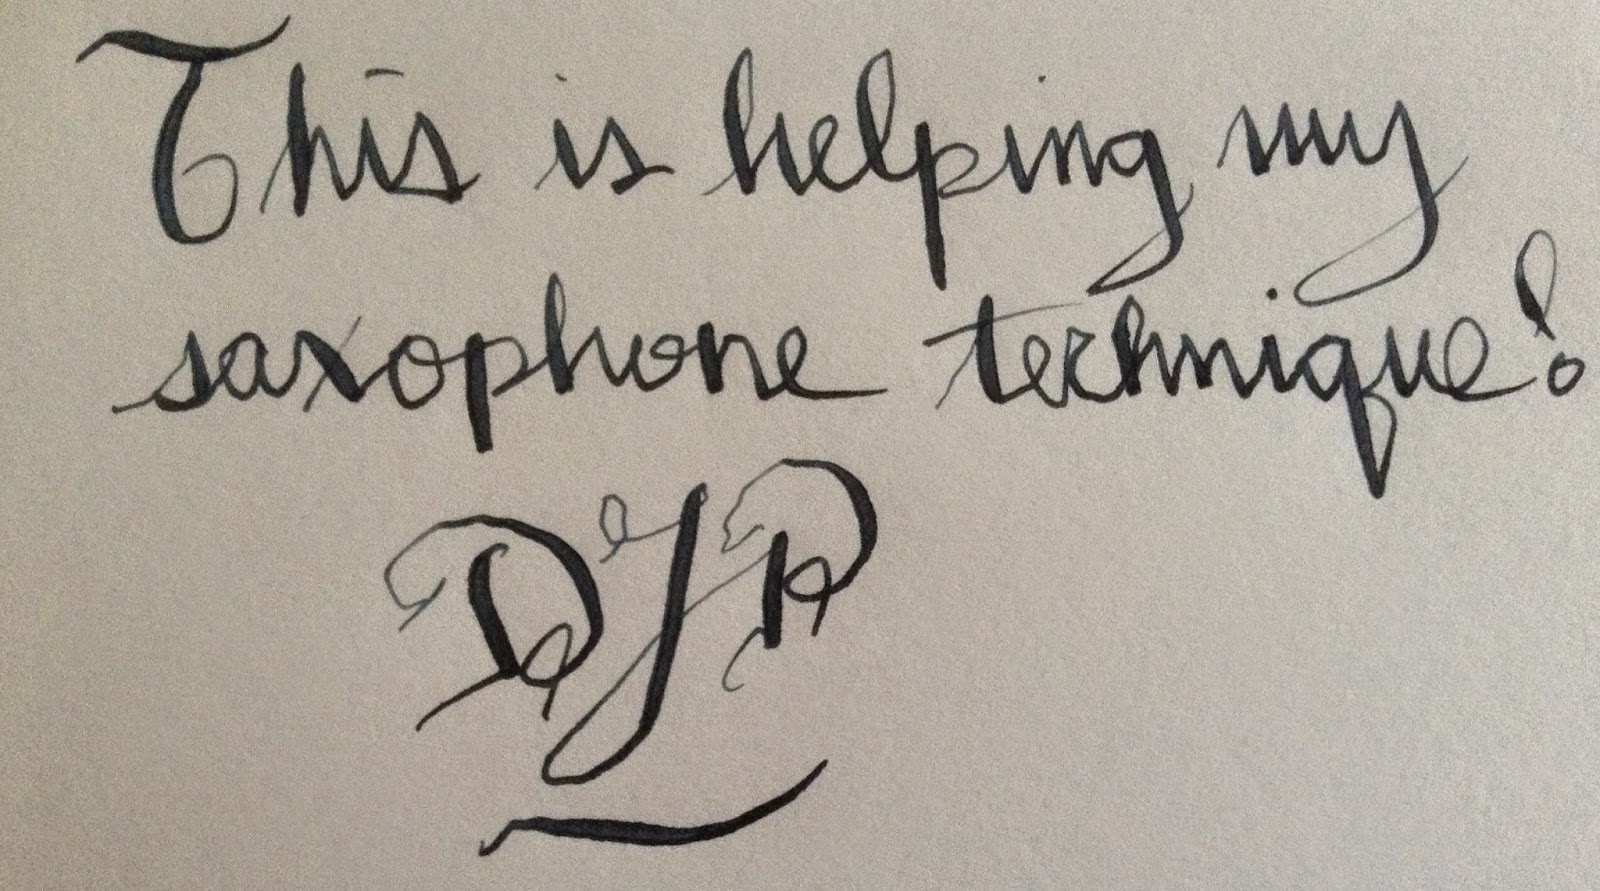 This is helping my
saxophone technique!
DJP